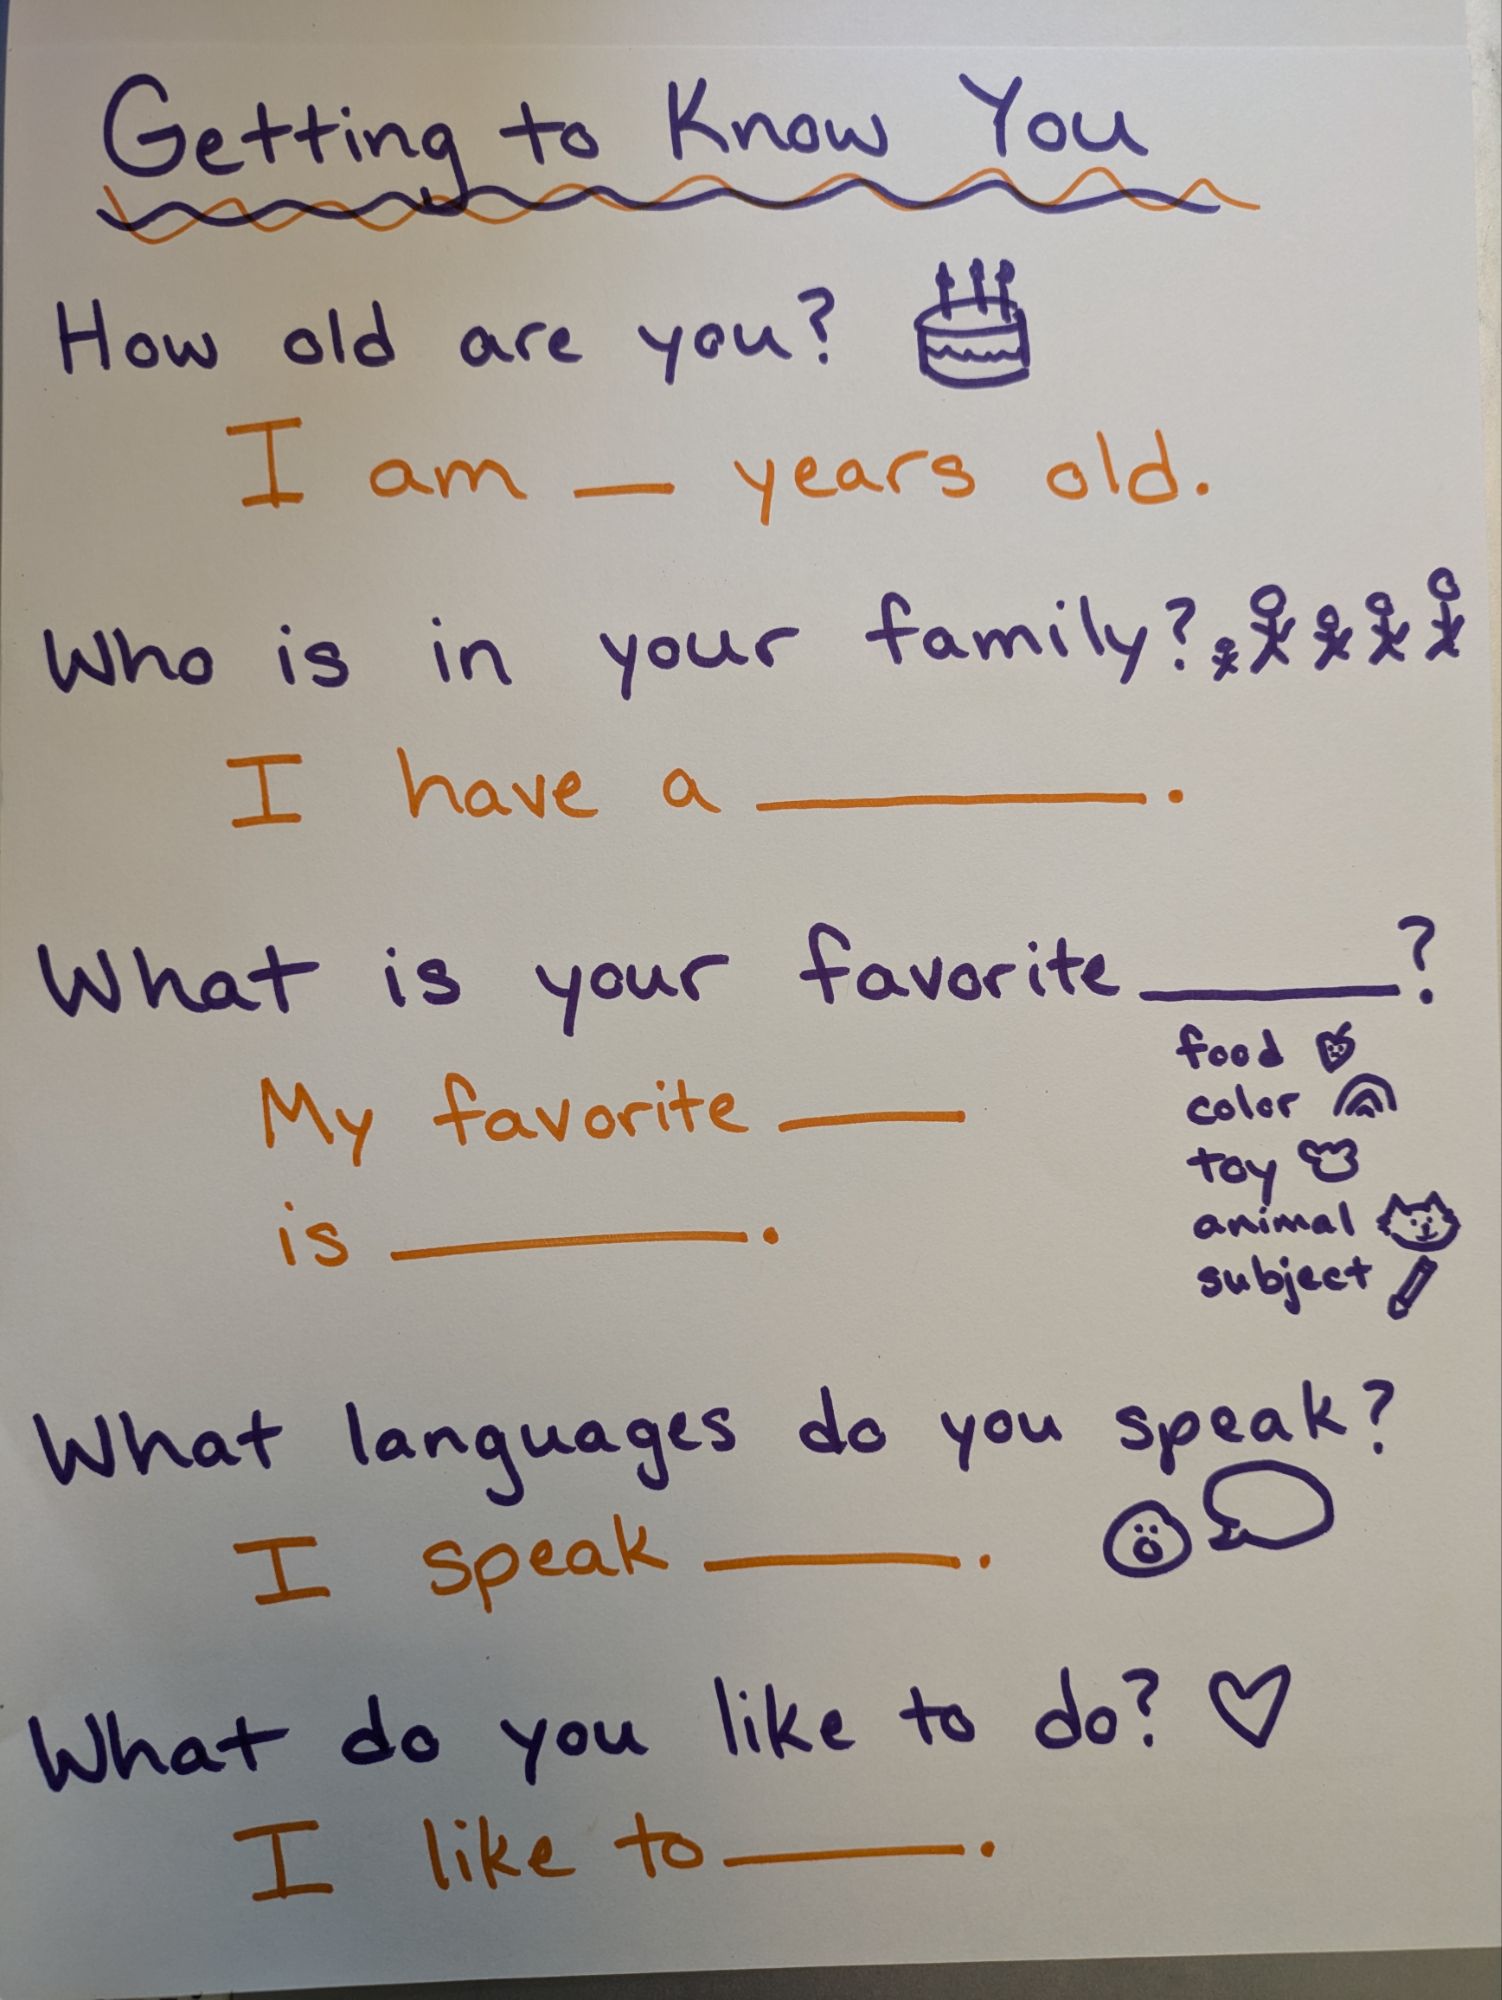 Getting to Know You
How old are you?
I am __ years old.
Who is in your family?
I have a ________.
What is your favorite ______?
food
color
toy
animal
subject
My favorite ____
is ________.
What languages do you speak?
I speak ______.
What do you like to do?
I like to ______.